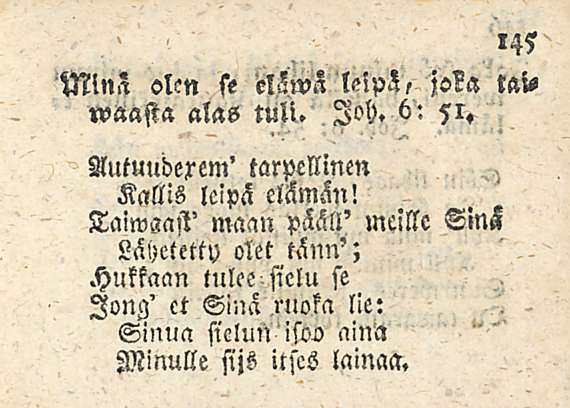 145
Minä olen se eläwä leipä, joka tai-
waasta alas tuli. Joh. 6: 51.
Autuudexem' tarpellinen
Kallis leipä elämän!
Taiwaast' maan pääll' meille Sinä
Lähetetty olet tänn';
Hukkaan tulee sielu se
Jong' et Sinä ruoka lie:
Sinua sielun isoo aina
Minulle sijs itses lainaa.